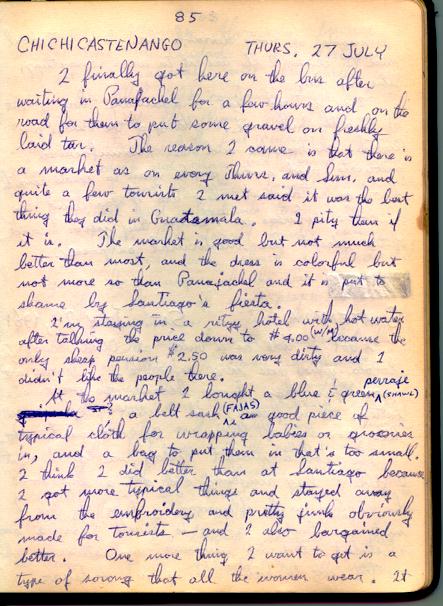 85
CHICHICASTENANGO THURS, 27 JULY
I finally got here on the bus after
waiting in Panajachel for a few hours and on the
road for them to put some gravel on freshly
laid tar. The reason I came is that there is
a market as on every Thurs. and Sun. and
quite a few tourists I met said it was the best
thing they did in Guatamala. I pity them if
it is. The market is good but not much
better than most, and the dress is colorful but
not more so than Panajachel and it is put to
shame by Santiago's fiesta.
I'm staying in a ritzy hotel with hot water
after talking the price down to $4.00 (W/M) because the
only cheap pension $2.50 was very dirty and I
didn't like the people there.
At the market I bought a blue & green perraje (SHAWL)
a belt sash (FAJAS) a good piece of
typical cloth for wrapping babies or groceries
in, and a bag to put them in that's too small.
I think I did better than at Santiago because
I got more typical things and stayed away
from the embroidery and pretty junk obviously
made for tourists — and I also bargained
better. One more thing I want to get is a
type of sarong that all the women wear. It